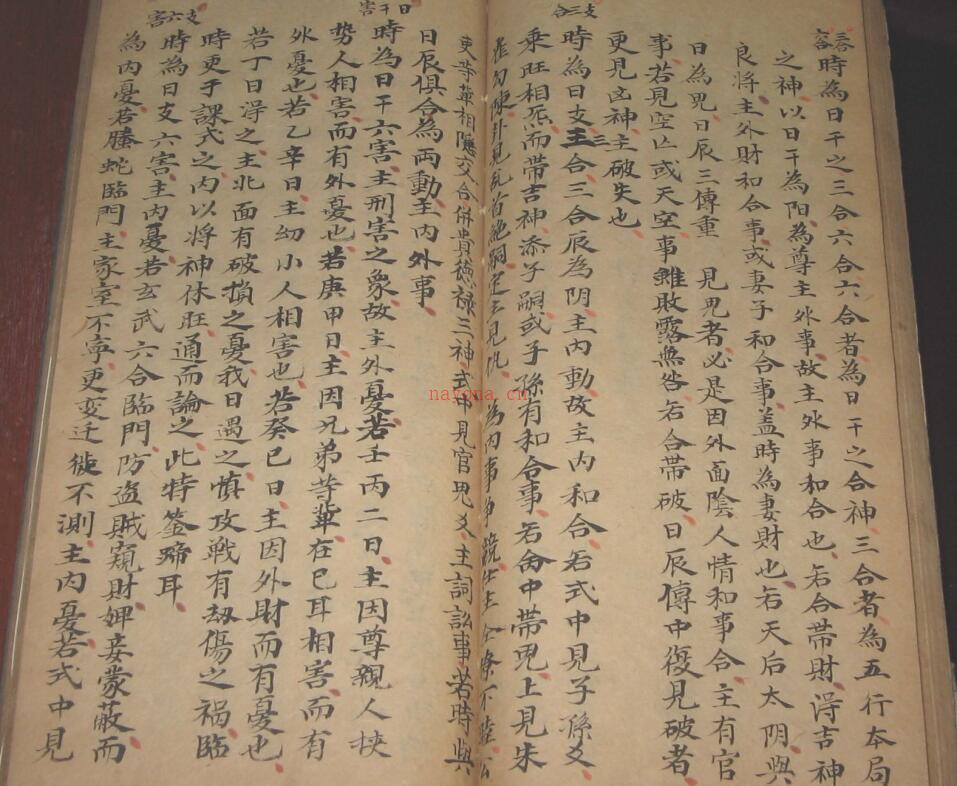 三合六合
時為日干之三合六合六合者為日干之合神三合者為五行本局
之神以日干為阳為尊主外事故主外事和合也若合帶財得吉神
良將主外財和合事或妻子和合事盖時為妻財也若天后太阴與
日為鬼日辰三傳重 見鬼者必是因外面陰人情和事合主有官
事若見空亡或天空事雖敗露無咎若合帶破日辰傳中復見破者
更見凶神主破失也
支三合
時為日支三合三合辰為阴主內動故主內和合若式中見子孫爻
乘旺相炁而帶吉神添子嗣或子孫有和合事若合中帶鬼上見朱
雀勾陳
見仇 為內事爭競
更等輩相隱交合併貴德禄三神式中見官鬼爻主詞訟事若時與
日辰俱合為兩動主內外事
日干害
時為日干六害主刑害之象故主外憂若壬丙二日主因尊親人挾
势人相害而有外憂也若庚甲日主因兄弟等輩在己耳相害而有
外憂也若乙辛日主幼小人相害也若癸己日主因外財而有憂也
若丁日淂之主北面有破損之憂我日遇之慎攻戦有刼傷之禍臨
時更于課式之內以將神休旺通而論之此特筌蹄耳
支六害
時為日支六害主內憂若玄武六合臨門防盗賊窺財婢妾蒙蔽而
為內憂若螣蛇臨門主家室不寧更变迁徙不測主內憂若式中見
nayona.cn